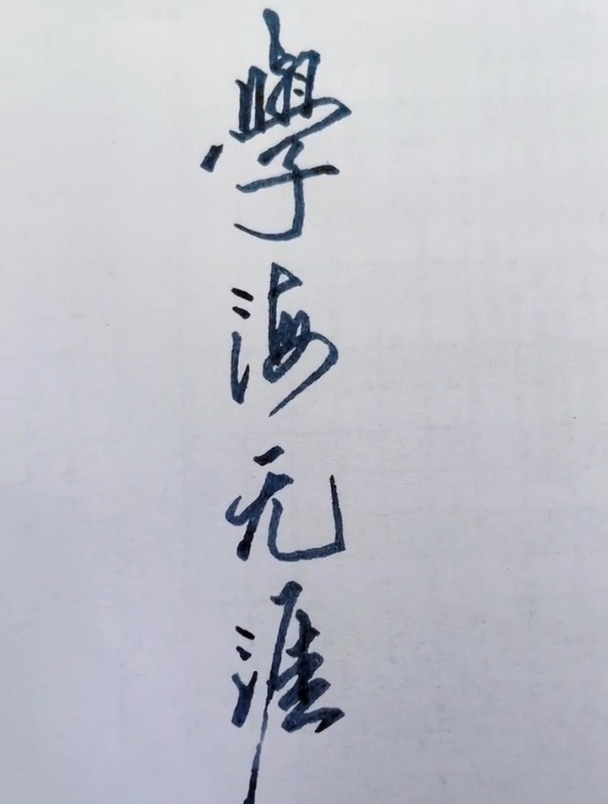 學海无涯